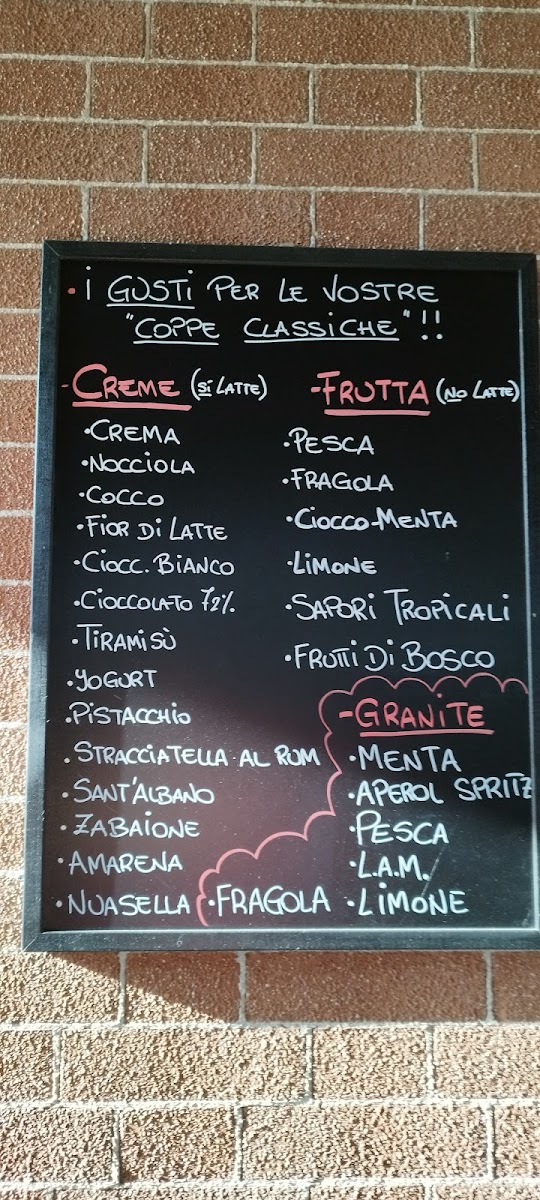 • i GUSTI PER LE VOSTRE
"COPPE CLASSICHE"!!
-CREME (Si LATTE)
•CREMA
•NOCCIOLA
•COCCO
•FIOR Di LATTE
•CIOCC. BIANCO
•CIOCCOLATO 72%
•TIRAMISÙ
•YOGURT
•PISTACCHIO
•STRACCIATELLA AL RUM
•SANT'ALBANO
•ZABAIONE
•AMARENA
•NUASELLA
-FRUTTA (NO LATTE)
•PESCA
•FRAGOLA
•CIOCCO-MENTA
•LIMONE
•SAPORI TROPICALI
•FRUTTI Di BOSCO
-GRANITE
•MENTA
•APEROL SPRITZ
•PESCA
•L.A.M.
•FRAGOLA •LIMONE